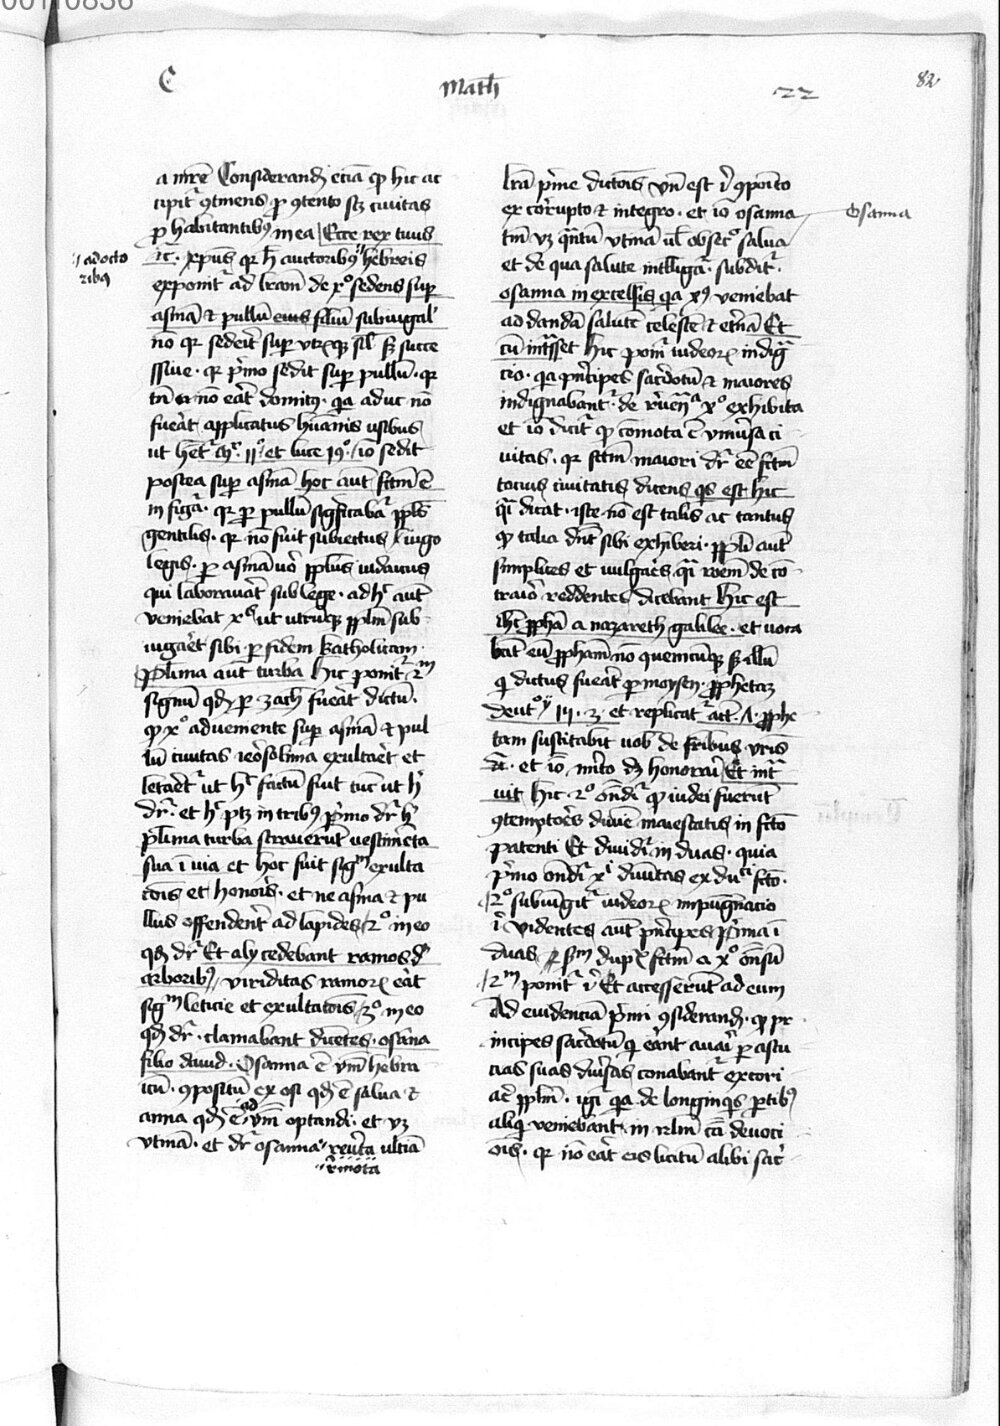 C
Math
22
82
a mr̄e Considerand̄ eciā qp hic ac
cipit᷑ ꝯtinens ꝓ ꝯtento scꝫ ciuitas
ꝓ habitantibꝰ in ea Ecce rex tuus
ic. xp̄us qr h̄ auctoribꝰ hebreis
// ad octo
ribꝫ
exponit᷑ ad lr̄am de xº sedens sup
asinā et pullū eius filiū subiugal̄
nō qr sedeīt sup vtrqꝫ sil̄ sꝫ succe
ssiue. qr p̄mo sedit sup pullū. qr
tn̄ nō eāt domitꝰ. qa aduc nō
fuēat applicatus hūanis usibus
ut het᷑ m͛. 11º. et luce 19º. iō sedit
postea sup asinā hoc aut̄ fc̄m ē
in figā. qr ꝑ pullū sigficabat᷑ ppl̄s
gentilis. qr nō fuit subiectus iugo
legis. ꝑ asinā vº ppl̄us iudaicus
qui laborauāt sub lege. ad hͨ aut̄
veniebat xꝰ ut utrūqꝫ ppl̄m sub
iugaēt sibi ꝑ fidem katholicam.
Pl̄ima aut̄ turba hic ponit᷑ 2m
signū qd̄ ꝑ zach fuēat dictū.
qp xº adueniente sup asinā et pul
lū ciuitas ierosolima exultaēt et
letaēt᷑ ut hͨ factū fuit tūc ut h͛
dr̄. et hͨ ptꝫ in tribꝰ p̄mo dr̄ h͛
pl̄ima turba strauerūt vestimēta
sua ī via et hoc fuit sigm exulta
cōis et honoīs. et ne asina et pu
llus offenderēt ad lapides 2º in eo
qd̄ dr̄ Et aly cedebant ramos d͛
arboribꝰ viriditas ramoꝝ eāt
sigm leticie et exultatōis 3º in eo
qd̄ dr̄. clamabant dicētes. osāna
filio dauid. Osanna ē vm̄ hebra
icū. ꝯpositū ex osi qd̄ ē salua et
anna qd̄ ē ad vm̄ optandi. et vꝫ
vtinā. et dr̄ osanna reīcta ultiā
// r̄mota
lr̄a p̄me dictōis vn̄ est ī ꝯpoīto
ex corrupto et integro. et iō osanna
Osanna
tm̄ vꝫ qn̄tū vtinā ul̄ obsecº salua
et de qua salute intlīgat᷑. subdit᷑.
osanna in excelsis qa xꝰ veniebat
ad dandā salutē celestē et et̄nā Et
cū int̄sset hic ponit᷑ iudeoꝝ indig͛
cio. qa p̄ncipes sac̄dotū et maiores
indignabant᷑. de reūen͛a xº exhibita
et iō dicit᷑ qp cōmota ē vniūsa ci
uitas. qr fc̄m maiori dr̄ eē fc̄m
tocius ciuitatis dicens qs est hic
q͛ dicat. iste nō est talis ac tantus
qp talia dn̄t sibi exhiberi. ppl̄i aut̄
simplices et vulgaēs q͛ rōem de cō
traiº reddentes dicebant Hic est
ihc̄ pphā a nazareth galilee. et voca
bāt eū pphām nō quemcūqꝫ sꝫ illū
q dictus fueāt ꝑ moysen. pphetaꝫ
deutº 18. et replicat᷑ act. 3. pphe
tam suscitabit vob̄ de fr̄ibus vr̄is
dc̄. et iō mīto d̄ honorai Et int̄
uit hic 2º on̄dit᷑ qp iudei fuerūt
ꝯtemptoēs diuine maiestatis in fcō
patenti Et diuidit᷑ in duas. quia
p̄mo on̄dit᷑ xi diuitas ex duci fcō.
2º subiūgit᷑ iudeoꝝ impugnacio
ī videntes aut̄ p̄ncipes p̄ma ī
duas sm̄ dupx fc̄m a xº on̄sū
2m ponit᷑ ī Et accesserūt ad eum
Ad euidenciā p̄mi ꝯsiderand̄. qp pr
incipes sac̄dotū q eānt auaī ꝑ astu
cias suas diūsas conabant᷑ extori
aē ppl̄m. igr̄ qa de longinqis ptibꝰ
aliqi veniebant in irl̄m cā deuoci
ōis. qr nō eāt eis licitū alibi sac͛